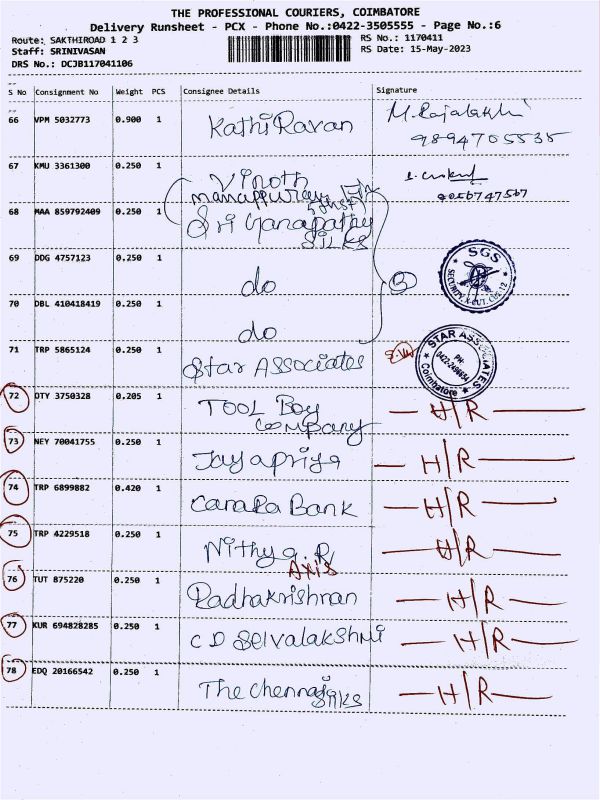 THE PROFESSIONAL COURIERS, COIMBATORE
Delivery Runsheet - PCX - Phone No.:0422-3505555 - Page No.:6
Route: SAKTHIROAD 1 2 3 RS No.: 1170411
Staff: SRINIVASAN RS Date: 15-May-2023
DRS No.: DCJB117041106
S No Consignment No Weight PCS Consignee Details Signature
66 VPM 5032773 0.900 1 KathiRavan M. Rajalakshmi
9894705535
67 KMU 3361300 0.250 1 Vinoth
manappuram 9056747567
68 MAA 859792409 0.250 1 Sri Ganapathy
SILKS
69 DDG 4757123 0.250 1 do 3 SGS
SECURITY
70 DBL 410418419 0.250 1 do
71 TRP 5865124 0.250 1 Star Associates STAR ASSOCIATES
PH:
Coimbatore
72 DTY 3750328 0.205 1 TOOL Boy H/R
Company
73 NEY 70041755 0.250 1 Jayapriya H/R
74 TRP 6899882 0.420 1 CanaRa Bank H/R
75 TRP 4229518 0.250 1 Nithya.R H/R
Axis
76 TUT 875220 0.250 1 Radhakrishnan H/R
77 KUR 694828285 0.250 1 C D Selvalakshmi H/R
78 EDQ 20166542 0.250 1 The Chennai H/R
Silks